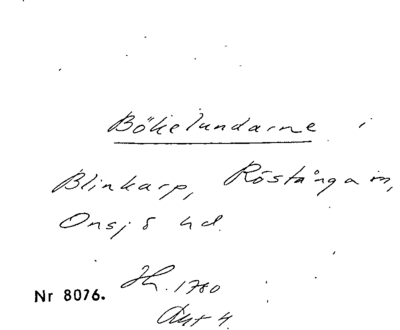 Bökelundarne i
Blinkarp, Röstånga sn,
Onsjö hd.
Hh. 1780
Akt 4.
Nr 8076.